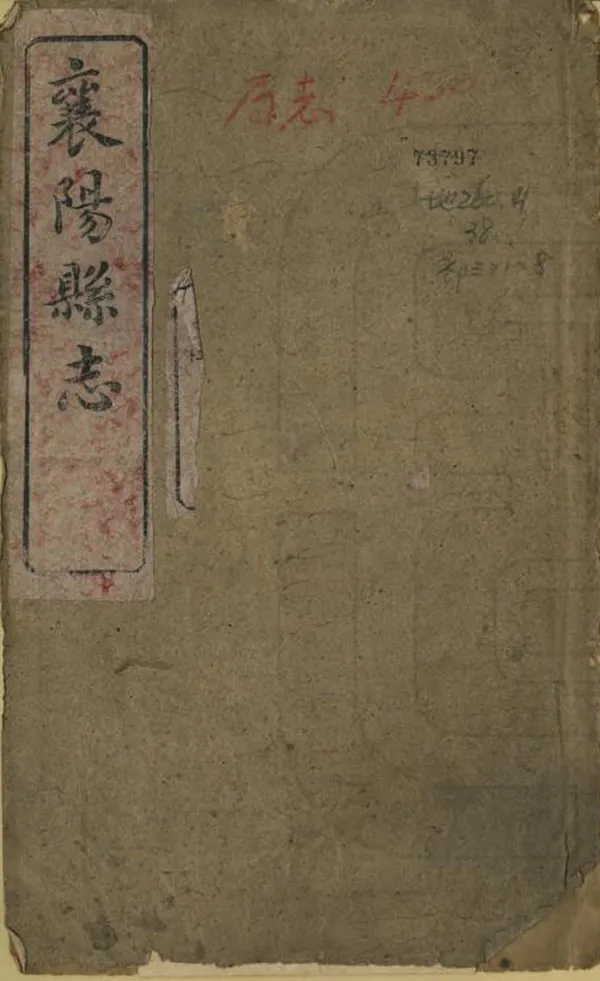 襄陽縣志
志 400
73797
地260.4
38